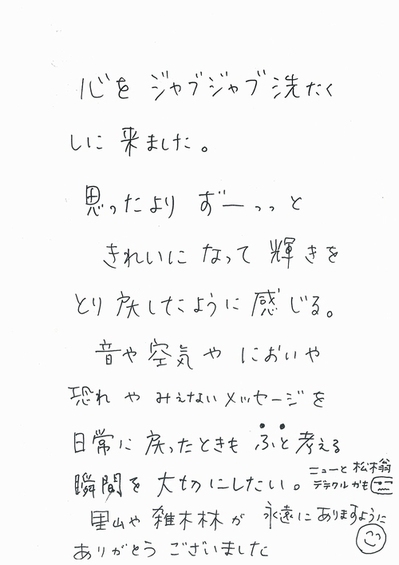 心を ジャブジャブ 洗たく
しに 来ました。
思ったより ずーっっと
きれいに なって 輝きを
とり 戻したように 感じる。
音や 空気 や においや
恐れ や みえない メッセージを
日常に 戻ったときも ふと 考える
瞬間を 大切にしたい。
ニューと 松木翁
デテクルかも
里山や 雑木林が 永遠に ありますように
ありがとう ございました